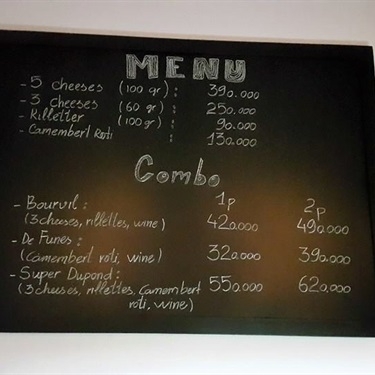 MENU
- 5 cheeses (100 gr) : 390.000
- 3 cheeses (60 gr) : 250.000
- Rilletter (100 gr) : 90.000
- Camembert Roti : 130.000
Combo
- Bourvil : 1p 2p
(3 cheeses, rillettes, wine) 420.000 490.000
- De Funes :
(camembert roti, wine) 320.000 390.000
- Super Dupond :
(3 cheeses, rillettes, camembert 550.000 620.000
roti, wine)